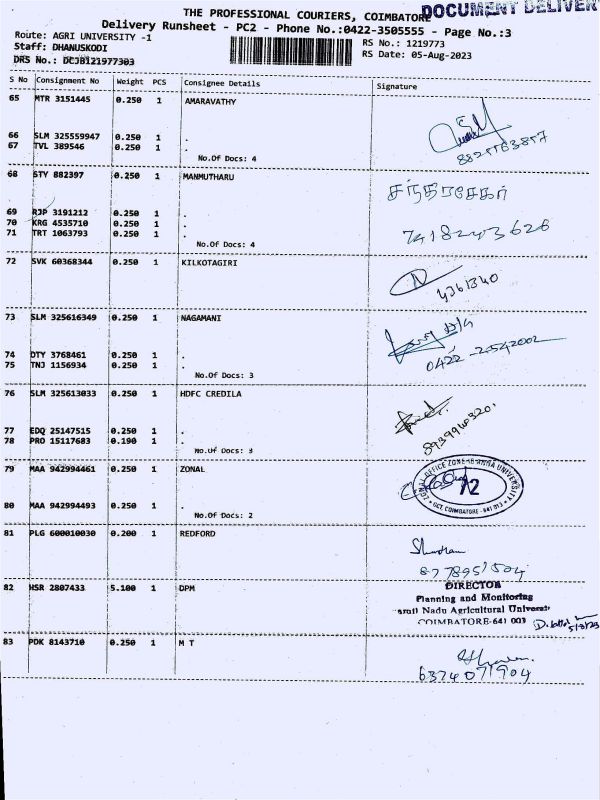 THE PROFESSIONAL COURIERS, COIMBATORE
DOCUMENT DELIVER
Delivery Runsheet - PC2 - Phone No.:0422-3505555 - Page No.:3
Route: AGRI UNIVERSITY -1 RS No.: 1219773
Staff: DHANUSKODI RS Date: 05-Aug-2023
DRS No.: DCJB121977303
S No Consignment No Weight PCS Consignee Details Signature
65 MTR 3151445 0.250 1 AMARAVATHY
66 SLM 325559947 0.250 1 .
67 TVL 389546 0.250 1 .
No.Of Docs: 4
68 STY 882397 0.250 1 MANMUTHARU
சந்திரசேகர்
69 RJP 3191212 0.250 1 .
70 KRG 4535710 0.250 1 .
71 TRT 1063793 0.250 1 .
7418243626
No.Of Docs: 4
72 SVK 60368344 0.250 1 KILKOTAGIRI
4361340
73 SLM 325616349 0.250 1 NAGAMANI
74 DTY 3768461 0.250 1 .
75 TNJ 1156934 0.250 1 .
0422-2542002
No.Of Docs: 3
76 SLM 325613033 0.250 1 HDFC CREDILA
8939940320.
77 EDQ 25147515 0.250 1 .
78 PRO 15117683 0.190 1 .
No.Of Docs: 3
79 MAA 942994461 0.250 1 ZONAL
OFFICE ZONE-18 ANNA UNIVERSITY
12
UCT COIMBATORE - 641 013
80 MAA 942994493 0.250 1 .
No.Of Docs: 2
81 PLG 600010030 0.200 1 REDFORD
8778951504
82 HSR 2807433 5.100 1 DPM
DIRECTOR
Planning and Monitoring
Tamil Nadu Agricultural Universit
COIMBATORE-641 003
5/8/23
83 PDK 8143710 0.250 1 M T
6374071904